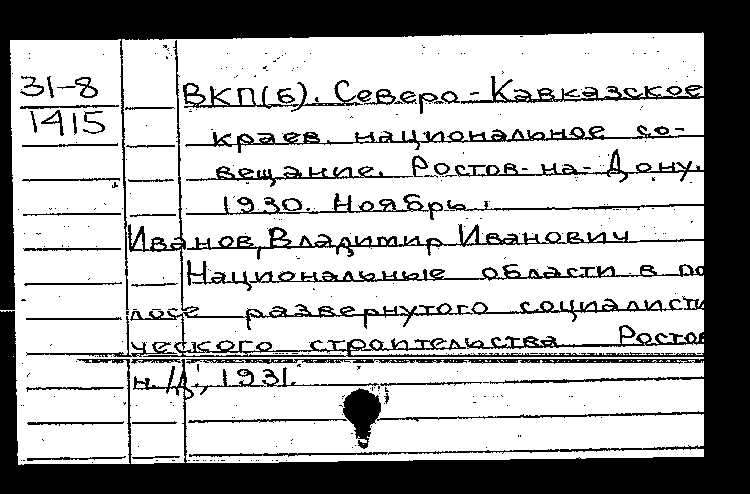 31-8
1415
ВКП(б). Северо-Кавказское
краев. национальное со-
вещание. Ростов-на-Дону.
1930. Ноябрь.
Иванов, Владимир Иванович
Национальные области в по
лосе развернутого социалисти
ческого строительства Ростов
н./Д., 1931.